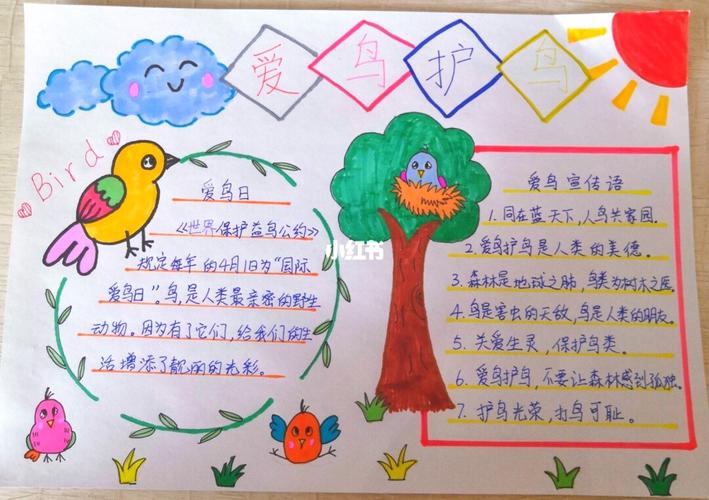 爱鸟护鸟
Bird
爱鸟日
《世界保护益鸟公约》
规定每年的4月1日为“国际
爱鸟日”。鸟,是人类最亲密的野生
动物。因为有了它们,给我们的生
活增添了靓丽的光彩。
小红书
爱鸟宣传语
1. 同在蓝天下,人鸟共家园。
2. 爱鸟护鸟是人类的美德。
3. 森林是地球之肺,鸟类为树木之医。
4. 鸟是害虫的天敌,鸟是人类的朋友。
5. 关爱生灵,保护鸟类。
6. 爱鸟护鸟,不要让森林感到孤独。
7. 护鸟光荣,打鸟可耻。